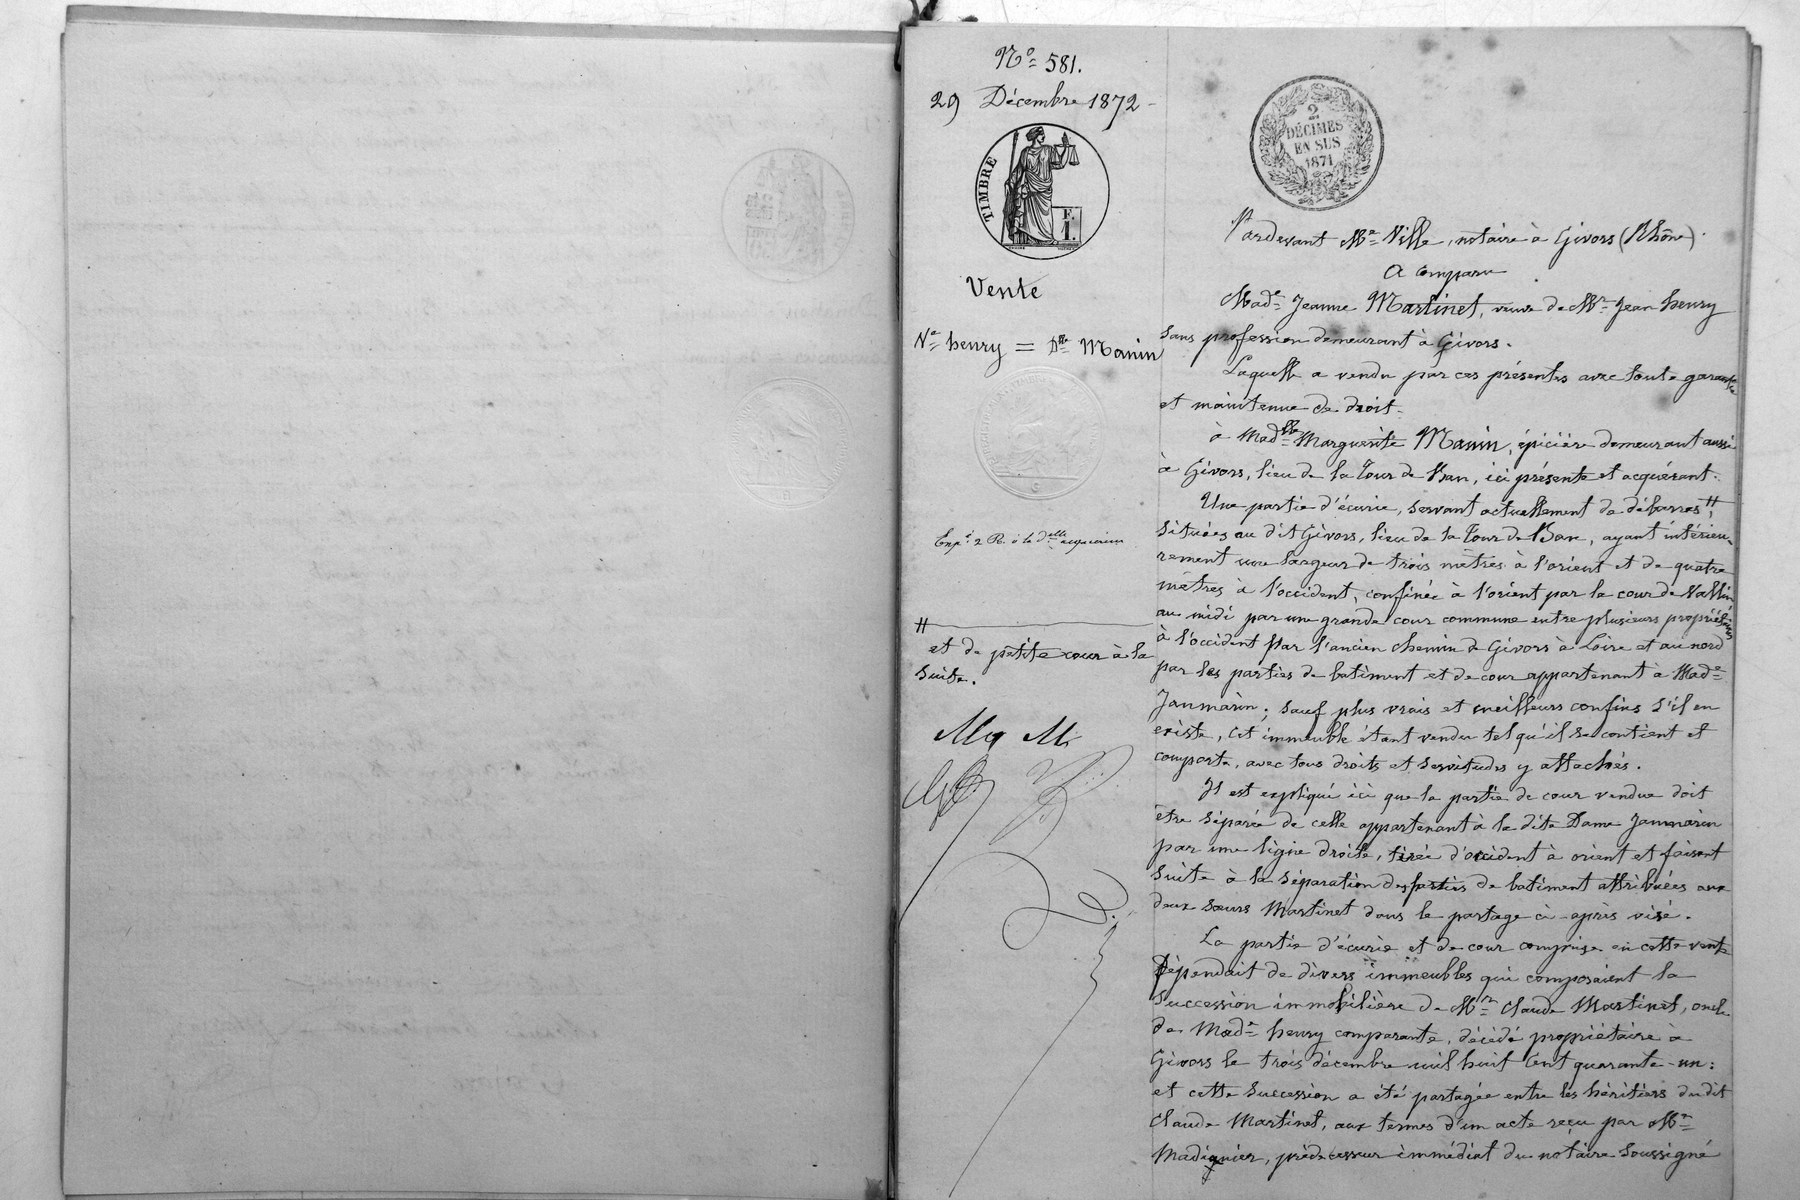 No 581.
29 Décembre 1872 -
TIMBRE
F.
I.
Vente
Ve henry = Dlle Manin
Expé 2 R. à la dlle acquéreur
//
et de petite cour à la
suite.
Ma M
2
DÉCIMES
EN SUS
1871
Pardevant Me Ville, notaire à Givors (Rhône).
A comparu
Made Jeanne Martinet, veuve de Mr Jean henry
sans profession demeurant à Givors.
Laquelle a vendu par ces présentes avec toute garantie
et maintenue de droit.
à Madlle Marguerite Manin, épicière demeurant aussi
à Givors, lieu de la Tour de Ban, ici présente et acquérant.
Une partie d'écurie, servant actuellement de débarras //,
situées au dit Givors, lieu de la Tour de Ban, ayant intérieu-
rement une largeur de trois mètres à l'orient et de quatre
mètres à l'occident, confinée à l'orient par la cour de Vallin
au midi par une grande cour commune entre plusieurs propriétaires
à l'occident Par l'ancien chemin de Givors à Loire et au nord
par les parties de batiment et de cour appartenant à Made
Janmarin; sauf plus vrais et meilleurs confins s'il en
existe, cet immeuble étant vendu tel qu'il se contient et
comporte, avec tous droits et servitudes y attachés.
Il est expliqué ici que la partie de cour vendue doit
être séparée de celle appartenant à la dite Dame Janmarin
par une ligne droite, tirée d'occident à orient et faisant
suite à la séparation des parties de batiment attribuées aux
deux soeurs Martinet dans le partage ci-après visé.
La partie d'écurie et de cour comprise en cette vente
Dépendait de divers immeubles qui composaient la
succession immobilière de Mr Claude Martinet, oncle
de Made henry comparante, décédé propriétaire à
Givors le trois décembre mil huit Cent quarante-un:
et cette succession a été partagée entre les héritiers dudit
Claude Martinet, aux termes d'un acte reçu par Me
Madignier, prédécesseur immédiat du notaire soussigné